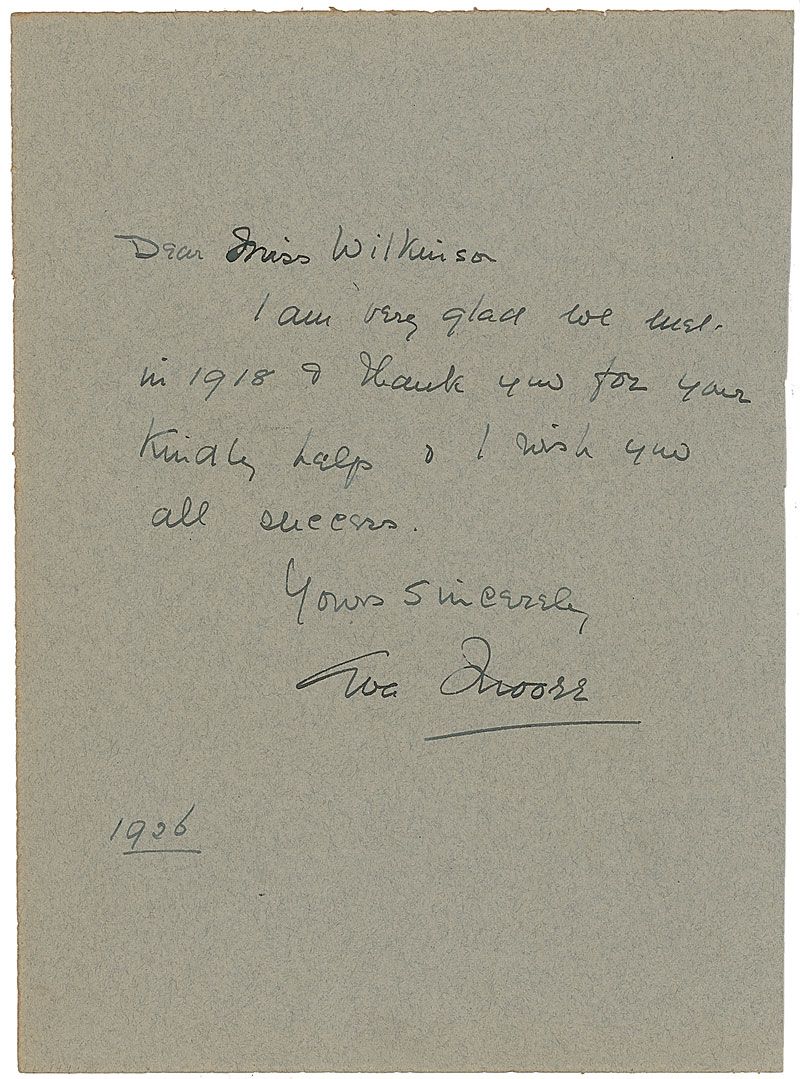 Dear Miss Wilkinson
I am very glad we met.
in 1918 & thank you for your
kindly help & I wish you
all success.
Yours sincerely
Eva Moore
1926